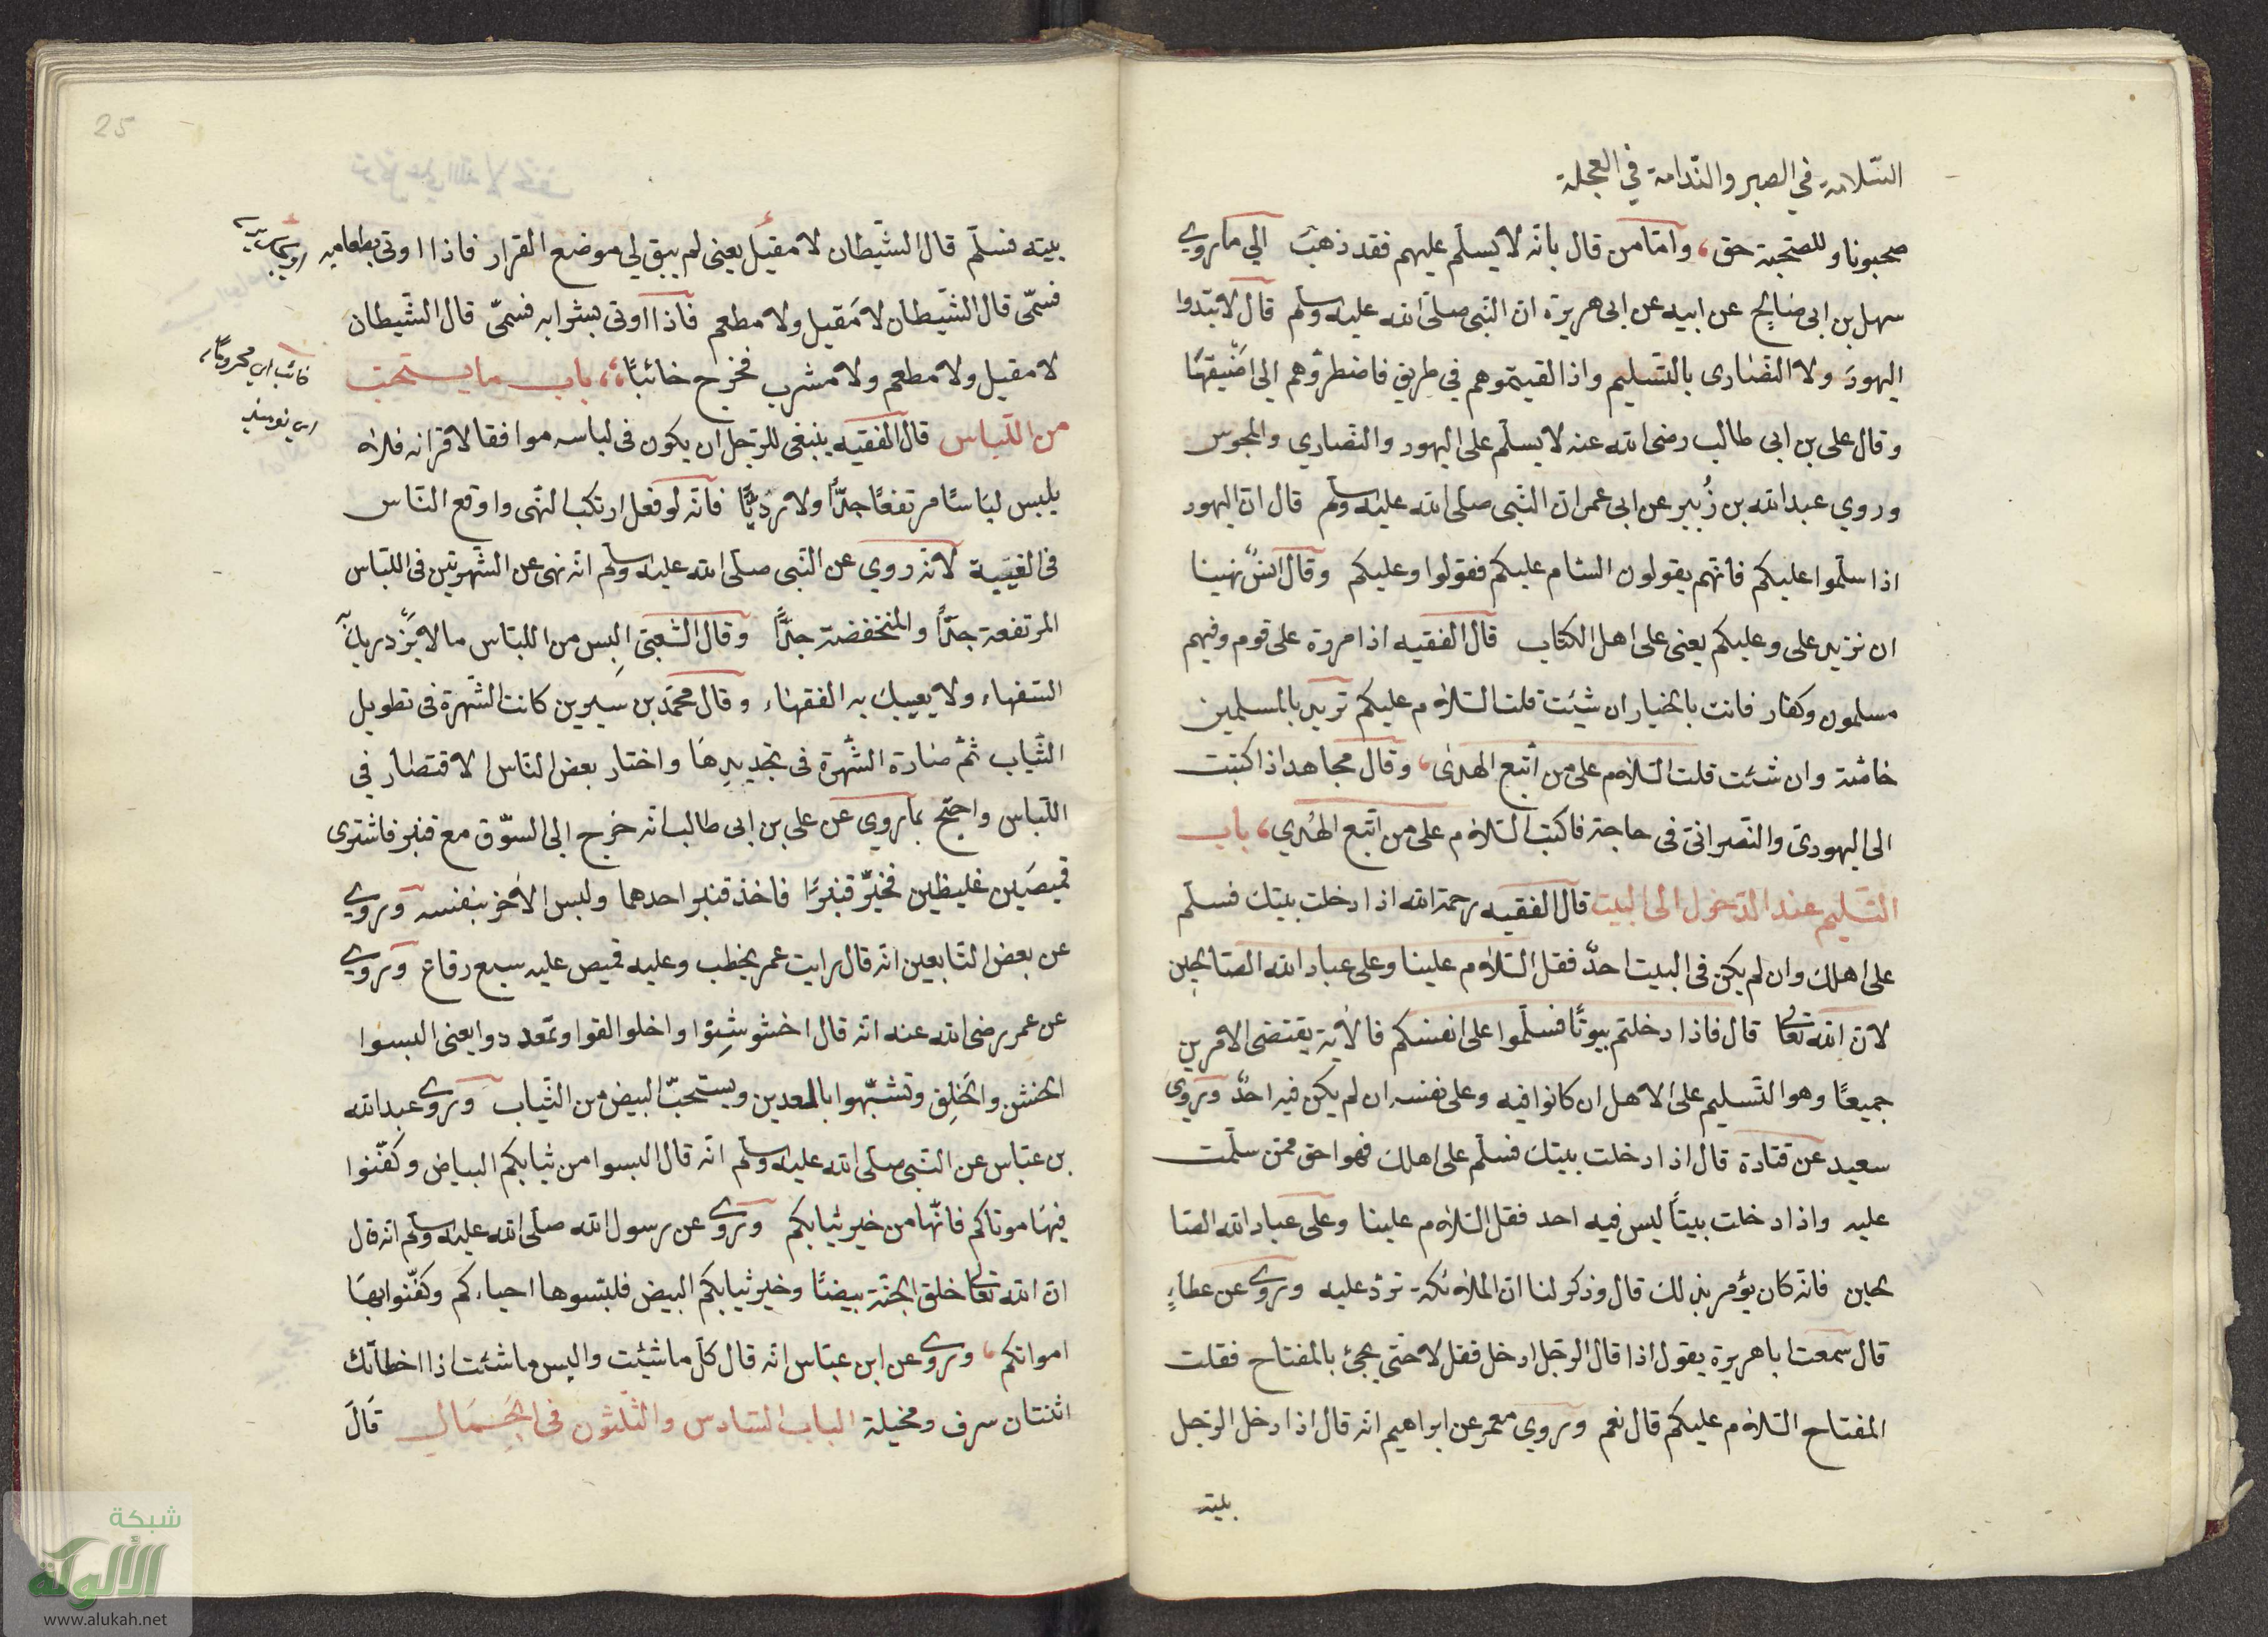 السّلامة في الصبر والنّدامة في العجلة
صحبونا وللصّحبة حق، وامّا من قال بانّه لا يسلّم عليهم فقد ذهبَ الي ما روي
سهل بن ابى صَالِح عن ابيه عن ابى هريرة ان النّبى صلّى الله عليه وسلم قال لا تبتدوا
اليهودَ ولا النّصَارى بالتّسليم واذا لقيتموهم فى طريق فاضطرّوهم الى اضْيقهَا
وقال على بن ابى طالب رضى الله عنه لا يسلّم على اليهود والنّصاري والمجوس
وروي عبد الله بن زُبير عن ابى عمر انّ النّبى صلى الله عليه وسلم قال انّ اليهود
اذا سلّموا عليكم فانّهم يقولون السّام عليكم فقولوا وعليكم وقال انسٌ نهينا
ان نزيد على وعليكم يعنى على اهل الكتاب قال الفقيه اذا مررة على قوم وفيهم
مسلمون وكفّار فانت بالخيار ان شيئت قلت السّلام عليكم تريد بالمسلمين
خاصّة وان شئت قلت السّلام على من اتّبع الهدى، وقال مجاهد اذا كتبت
الى اليهودىّ والنّصرانىّ فى حاجة فاكتب السّلام على من اتّبع الهُدي، باب
التسليم عند الدّخول الى البيت قال الفقيه رحمة الله اذا دخلت بيتك فسلّم
على اهلك وان لم يكن فى البيت احدٌ فقل السّلام علينا وعلى عباد الله الصّالحين
لانّ الله تعالى قال فاذا دخلتم بيوتًا فسلّموا على انفسكم فالآية يقتضى الامرين
جميعًا وهو التّسليم على الاهل ان كانوا فيه وعلى نفسه ان لم يكن فيه احدٌ وروى
سعيد عن قتادة قال اذا دخلت بيتك فسلّم على اهلك فهو احق ممّن سلّمت
عليه واذا دخلت بيتاً ليس فيه احد فقل السّلام علينا وعلى عباد الله الصّا
لحين فانّه كان يؤمر بذلك قال وذكر لنا انّ الملائكة تردّ عليه وروى عن عطاءٍ
قال سمعت ابا هريرة يقول اذا قال الرّجل ادخل فقل لا حتّى يجئ بالمفتاح فقلت
المفتاح السّلام عليكم قال نعم وروي معمر عن ابراهيم انّه قال اذا دخل الرّجل
بيته
25
بيته فسلّم قال الشّيطان لا مقيل يعنى لم يبق لي موضع القرار فاذا اوتى بطعامه
فسمّى قال الشّيطان لا مَقيل ولا مطعم فاذا اوتى بشرابه فسمّى قال الشّيطان
لا مقيل ولا مطعم ولا مشرب فخرج خائبًا، باب ما يستحبّ
من اللّباس قال الفقيه ينبغى للرّجل ان يكون فى لباسه موافقا لاقرانه فلا
يلبس لبَاسًا مرتفعًا جدًّا ولا رديًّا فانّه لو فعل ارتكب النّهى واوقع النّاس
فى الغيبة لانّه روي عن النّبى صلّى الله عليه وسلّم انّه نهى عن الشّهرتين فى اللّباس
المرتفعة جدًّا والمنخفضة جدًّا وقال الشّعبىّ البِس من اللباس ما لا يَزْدريك
السّفهاء ولا يعيبك به الفقهَاء وقال محمّد بن سيرين كانت الشّهرة فى تطويل
الثّياب ثمّ صَارة الشّهرة فى تجديدهَا واختار بعض النّاس الاقتصار في
اللّباس واحتجّ بما روي عن على بن ابى طالب انّه خرج الى السوّق مع قنبر فاشترى
قميصَين غليظين فخيّر قنبرًا فاخذ قنبر احدهما ولبس الاخر بنفسه وروي
عن بعض التّابعين انّه قال رايت عمر يخطب وعليه قميص عليه سبع رقاع وروي
عن عمر رضى الله عنه انّه قال اخشوشِنوا واخلولقوا وتمعددوا يعنى البسوا
الخشن والخَلِق وتشبّهوا بالمعدين ويستحبّ البيض من الثّياب وروى عبد الله
بن عبّاس عن النّبى صلى الله عليه وسلّم انّه قال البسوا من ثيابكم البياض وكفّنوا
فيهَا موتاكم فانّها من خير ثيابكم وروى عن رسول الله صلّى الله عليه وسلّم انّه قال
انّ الله تعالى خلق الجنّة بيضًا وخير ثيابكم البيض فلبّسوها احياءكم وكفّنوا بهَا
امواتكم، وروى عن ابن عبّاس انّه قال كل ما شيئت والبس ما شئت اذا اخطأتك
اثنتان سرف ومخيلة الباب السّادس والثّلثون فى الجَمَال قَالَ
شبكة
الألوكة
www.alukah.net